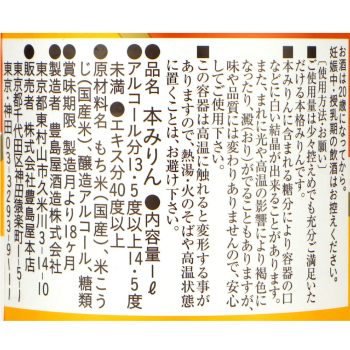 お酒は20歳になってから。
妊娠中、授乳期の飲酒はお控えください。
〔使用方法・お願い〕
■ご使用量(控えめでも充分)ご満足いた
だける本格みりんです。
■本みりんに含まれる糖分により容器の口
などに白い結晶が出来ることがあります。
また、まれに光や高温の影響により褐色に
なったり、澱(おり)がでることもありますが、
味や品質には変わりありませんので、安心
してご使用下さい。
■この容器は高温に触れると変形する事が
ありますので、熱湯・火のそばや高温状態
に置くことは、お避け下さい。
■品名 本みりん ■内容量1ℓ
■アルコール分13.5度以上14.5度
未満 ■エキス分40度以上
■原材料名 もち米(国産)、米こう
じ(国産米)、醸造アルコール、糖類
■賞味期限 製造月より18ヶ月
■製造者 豊島屋酒造株式会社
東京都東村山市久米川町3-14-10
■販売者 株式会社豊島屋本店
東京都千代田区神田猿楽町1-5-1
東京・神田03-3293-9111